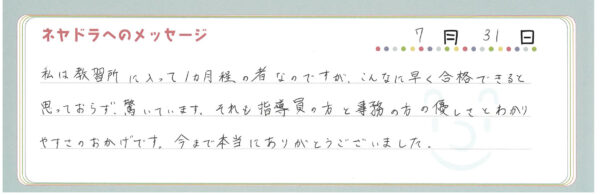 ネヤドラへのメッセージ 7 月 31 日
私は教習所に入って1カ月程の者なのですが、こんなに早く合格できると
思っておらず、驚いています。それも指導員の方と事務の方の優しさとわかり
やすさのおかげです。今まで本当にありがとうございました。